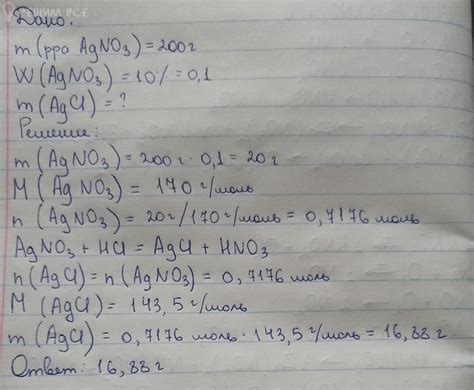 РЕШИМ ВСЁ
Дано:
m(рра AgNO₃)=200г
W(AgNO₃)=10%=0,1
m(AgCl)=?
Решение:
m(AgNO₃)=200г·0,1=20г
M(AgNO₃)=170 г/моль
n(AgNO₃)=20г/170г/моль=0,7176 моль
AgNO₃+HCl=AgCl+HNO₃
n(AgCl)=n(AgNO₃)=0,7176 моль
M(AgCl)=143,5 г/моль
m(AgCl)=0,7176 моль·143,5 г/моль=16,88 г
Ответ: 16,88 г